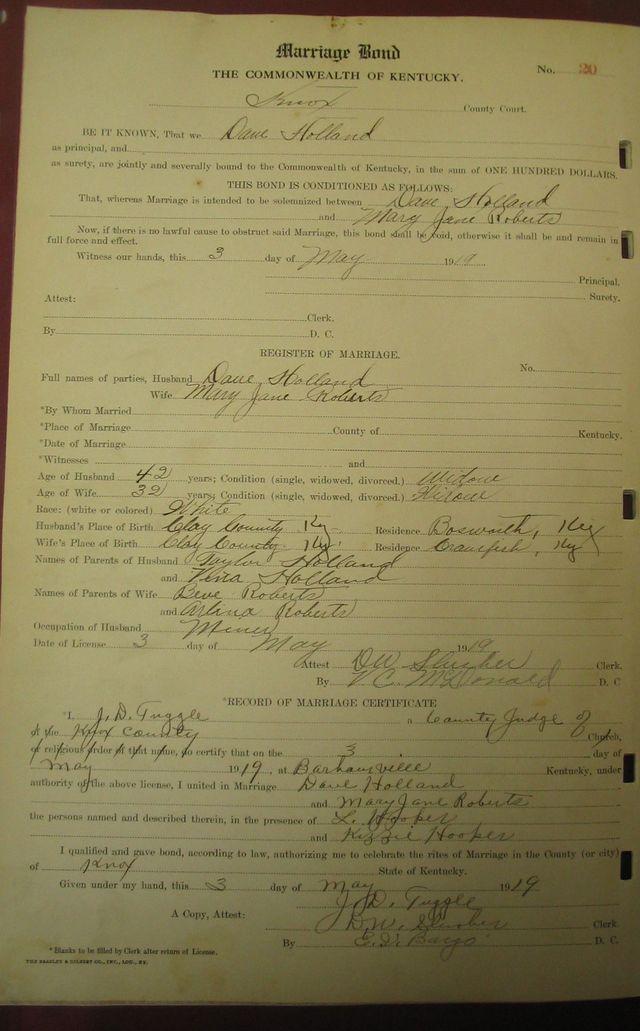 Marriage Bond
THE COMMONWEALTH OF KENTUCKY.
No. 20
Knox County Court.
BE IT KNOWN, That we Dave Holland
as principal, and
as surety, are jointly and severally bound to the Commonwealth of Kentucky, in the sum of ONE HUNDRED DOLLARS.
THIS BOND IS CONDITIONED AS FOLLOWS:
That, whereas Marriage is intended to be solemnized between Dave Holland
and Mary Jane Roberts
Now, if there is no lawful cause to obstruct said Marriage, this bond shall be void, otherwise it shall be and remain in
full force and effect.
Witness our hands, this 3 day of May 1919
Principal.
Attest: Surety.
Clerk.
By D. C.
REGISTER OF MARRIAGE.
No.
Full names of parties, Husband Dave Holland
Wife Mary Jane Roberts
*By Whom Married
*Place of Marriage County of Kentucky.
*Date of Marriage
*Witnesses and
Age of Husband 42 years; Condition (single, widowed, divorced.) Widow
Age of Wife 32 years; Condition (single, widowed, divorced.)
Race: (white or colored) White
Husband's Place of Birth Clay County Ky Residence Bosworth, Ky
Wife's Place of Birth Clay County Ky. Residence Crawfish, Ky
Names of Parents of Husband Taylor Holland
and Holland
Names of Parents of Wife Beve Roberts
and Roberts
Occupation of Husband Miner
Date of License 3 day of May 1919
Attest D.W. Slusher Clerk.
By V.C. McDonald D. C
*RECORD OF MARRIAGE CERTIFICATE
*I, J. D. Tuggle a County Judge of
of the Knox County Church,
or religious order of that name, do certify that on the 3 day of
May 1919, at Barbourville Kentucky, under
authority of the above license, I united in Marriage Dave Holland
and Mary Jane Roberts
the persons named and described therein, in the presence of L. Hooper
and Kizzie Hooper
I qualified and gave bond, according to law, authorizing me to celebrate the rites of Marriage in the County (or city)
of Knox State of Kentucky.
Given under my hand, this 3 day of May 1919
J. D. Tuggle
A Copy, Attest: D.W. Slusher Clerk.
By Bargo D. C.
* Blanks to be filled by Clerk after return of License.
THE BRADLEY & GILBERT CO., INC., LOU., KY.